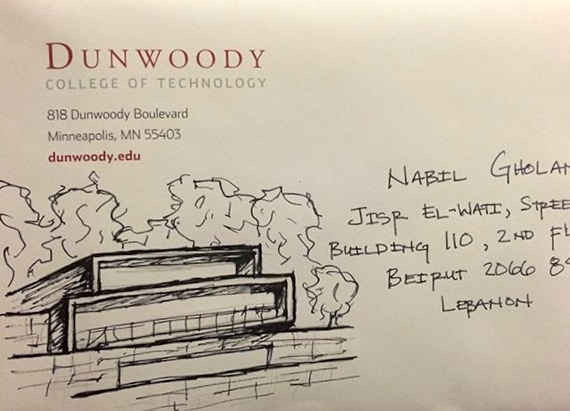 DUNWOODY
COLLEGE OF TECHNOLOGY
818 Dunwoody Boulevard
Minneapolis, MN 55403
dunwoody.edu
NABIL GHOLAM
JISR EL-WATI, STREE
BUILDING 110, 2ND FL
BEIRUT 2066 8
LEBANON